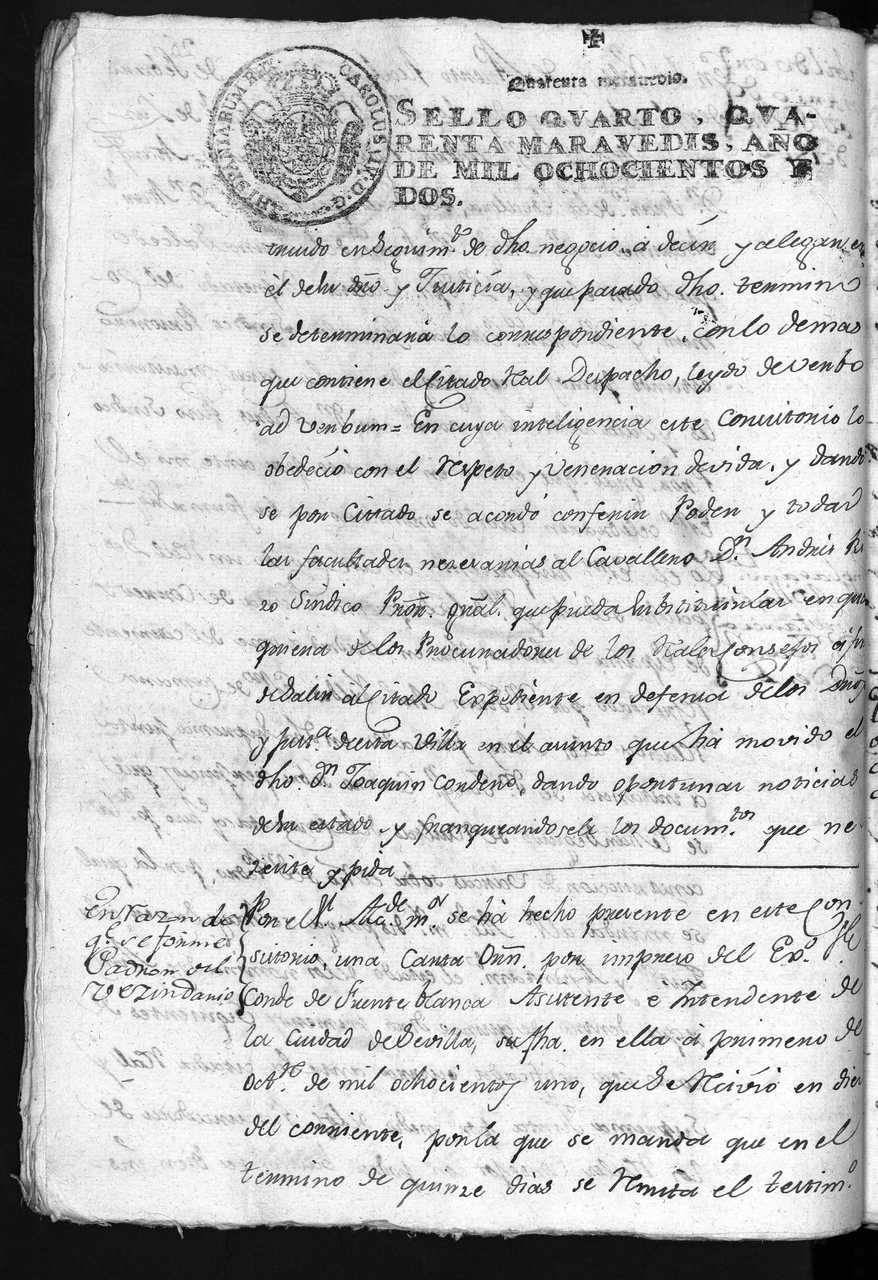 Quarenta maravedis.
SELLO QVARTO, QVA-
RENTA MARAVEDIS, AÑO
DE MIL OCHOCIENTOS Y
DOS.
CAROLUS IV. D. G. HISPANIARUM REX
en Seguim.to de dho. negocio, a decir y alegar en
él de su dro. y Justicia, y que pasado dho. termino
se determinará lo correspondiente, con lo demas
que contiene el Citado Ral Despacho, leydo de verbo
ad verbum = En cuya inteligencia este Consistorio lo
obedeció con el respeto y veneracion devida, y dando
se por Citado se acordó conferir Poder y todas
las facultades nezesarias al Cavallero Dn. Andrés Ri
zo Síndico Pror. gral. que pueda substituirlas en qual
quiera de los Procuradores de los Rales Consejos á fin
de Salir al Citado Expediente en defensa de los Dros
y just.a de esta Villa en el asunto que há movido el
dho. Dn. Joaquin Cordero, dando oportunas noticias
de su estado y franqueandosele los docum.tos que ne-
zesite y pida
En razon de
q.e se forme
Padron del
Vezindario
Por el Sr. Alc.de m.or se há hecho presente en este Con-
sistorio, una Carta Orn. por impreso del Exmo. Sr.
Conde de Fuente blanca Asistente é Intendente de
la Ciudad de Sevilla, su fha. en ella á primero de
Oct.re de mil ochocientos uno, que se recivió en diez
del corriente, por la que se manda que en el
termino de quinze dias se remita el testim.o